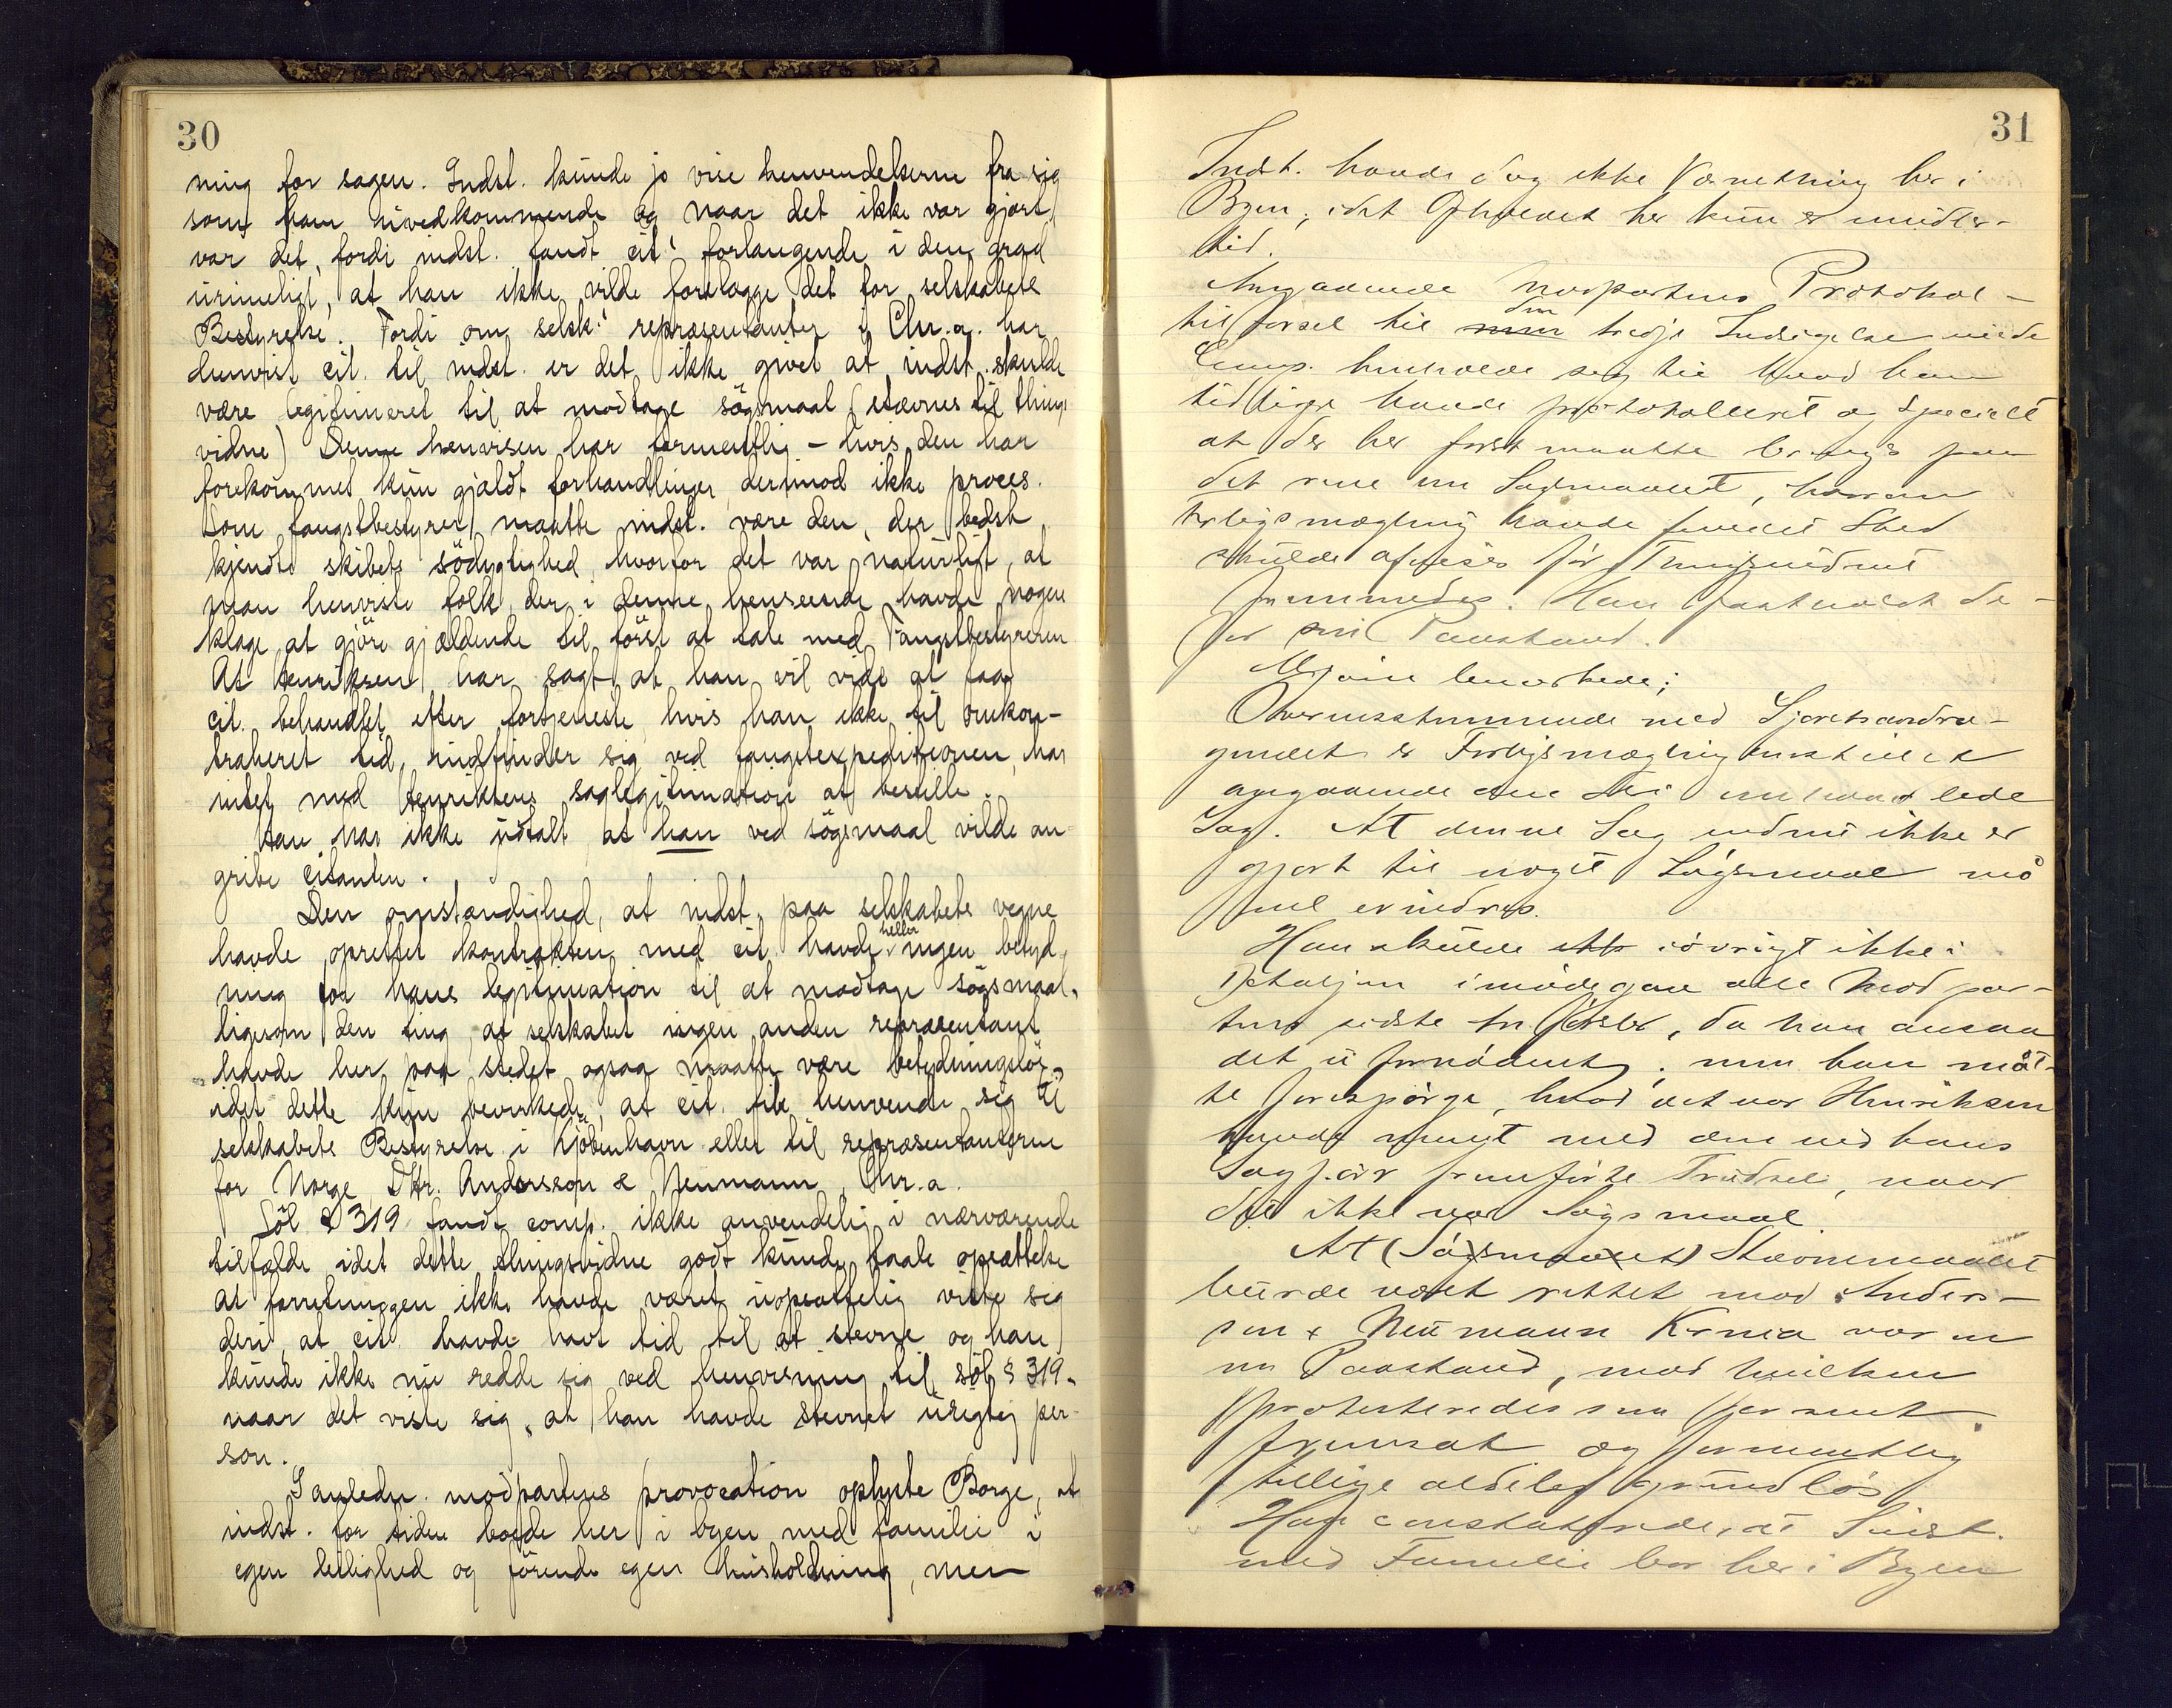 30
ning for sagen. Indst. kunde jo vise henvendelserne fra sig
som ham uvedkommende og naar det ikke var gjort,
var det, fordi indst. fandt cit's forlangende i den grad
urimeligt, at han ikke vilde forelægge det for selskabets
Bestyrelse. Fordi om selsk.s repræsentanter i Chr.a. har
henvist cit. til indst. er det ikke givet at indst. skulde
være legitimeret til at modtage sögsmaal (stævnes til things
vidne) Denne henvisen har formentlig – hvis den har
forekommet kun gjældt forhandlinger derimod ikke proces.
Som fangstbestyrer maatte indst. være den, der bedst
kjendte skibets södygtighed, hvorfor det var naturligt, at
man henviste folk, der i denne henseende havde nogen
klage at gjöre gjældende til först at tale med Fangstbestyreren
At Henriksen har sagt at han vil vide at faa
cit. behandlet efter fortjeneste hvis han ikke til omkon-
traheret tid, indfinder sig ved fangstexpeditionen, har
intet med Henriksens saglegitimation at bestille.
Han har ikke udtalt at han ved sögsmaal vilde an
gribe citanten.
Den omstændighed, at indst. paa selskabets vegne
havde oprettet kontrakten med cit. havde heller ingen betyd,
ning for hans legitimation til at modtage sögsmaal,
ligesom den ting, at selskabet ingen anden repræsentant
havde her paa stedet ogsaa maatte være betydningslös,
idet dette kun bevirkede, at cit. fik henvende sig til
selskabets Bestyrelse i Kjöbenhavn eller til repræsentanterne
for Norge, DHr. Andersson & Neumann, Chr.a.
Söl. § 319 fandt comp. ikke anvendelig i nærværende
tilfælde idet dette thingsvidne godt kunde taale opsættelse
at forretningen ikke havde været uopsættelig viste sig
deri, at cit. havde havt tid til at stevne og han
kunde ikke nu redde sig ved henvisning til söl § 319.
naar det viste sig, at han havde stevnet urigtig per-
son.
I anledn. modpartens provocation oplyste Borge, at
indst. for tiden boede her i byen med familie i
egen leilighed og förende egen husholdning, men
31
Indst. havde dog ikke Værnething her i
Byen, idet Opholdet her kun er midler-
tid.
Angaaende Modpartens Protokol-
tilförsel til min den tredje Indsigelse vilde
Comp. henholde sig til hvad han
tidligere havde protokolleret og specielt
at der her først maatte bringes paa
det rene om Søgsmaalet, hvorom
Forligsmægling havde fundet Sted
skulde afvises før Thingsvidnet
fremmedes. Han fastholdt de-
for sin Paastand.
bemærkede;
Overensstemmende med Sjøretsandra-
gendet er Forligsmægling anstillet
angaaende den
Sag. At denne Sag endnu ikke er
gjort til noget Søgsmaal må
vel erindres.
Han skulde iøvrigt ikke i
Detaljen imødegaa alle Modpar-
tens sidste tilførsler, da han ansaa
det ufornødent; men han måt-
te forespørge, hvad det var Henriksen
havde ment med den ved hans
Sagfører fremførte Trudsel, naar
det ikke var Søgsmaal.
At (Søgsmaalet) Stævnemaalet
burde været rettet mod Anders-
son & Neumann Krnia var en
ny Paastand, mod hvilken
protesteredes som forsent
fremsat og formentlig
tillige aldeles grundløs
Han constaterede, at Indst.
med Familie bor her i Byen